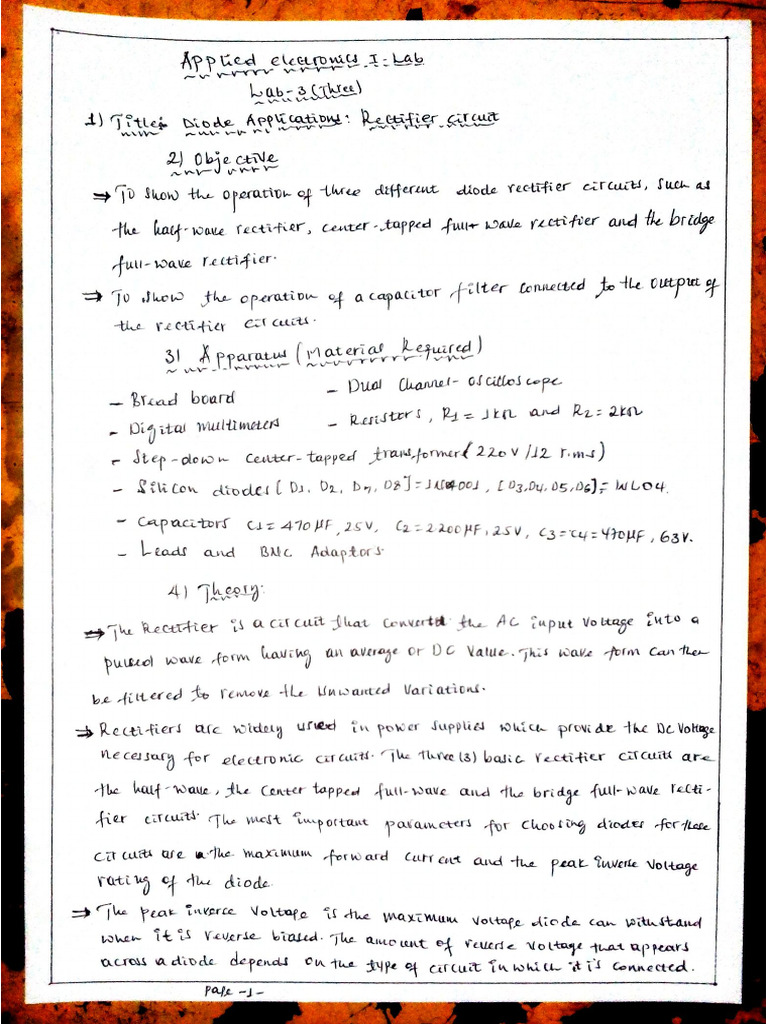 Applied electronics I: Lab
Lab-3 (Three)
1) Title: Diode Applications: Rectifier circuit
2) Objective
⇒ To show the operation of three different diode rectifier circuits, such as
the half-wave rectifier, center-tapped full wave rectifier and the bridge
full-wave rectifier.
⇒ To show the operation of a capacitor filter connected to the output of
the rectifier circuits.
3) Apparatus (Material Required)
- Bread board - Dual channel-oscilloscope
- Digital multimeters - Resistors, R1 = 1kΩ and R2 = 2kΩ
- Step-down center-tapped transformer (220V/12 r.m.s)
- Silicon diodes [D1, D2, D7, D8] = 1N4001, [D3, D4, D5, D6] = WL04.
- Capacitors C1 = 470μF, 25V, C2 = 2200μF, 25V, C3 = C4 = 470μF, 63V.
- Leads and BNC Adaptors.
4) Theory:
⇒ The Rectifier is a circuit that converts the AC input voltage into a
pulsed wave form having an average or DC value. This wave form can then
be filtered to remove the unwanted variations.
⇒ Rectifiers are widely used in power supplies which provide the DC voltage
necessary for electronic circuits. The three (3) basic rectifier circuits are
the half-wave, the center tapped full-wave and the bridge full-wave recti-
fier circuits. The most important parameters for choosing diodes for these
circuits are the maximum forward current and the peak inverse voltage
rating of the diode.
⇒ The peak inverse voltage is the maximum voltage diode can withstand
when it is reverse biased. The amount of reverse voltage that appears
across a diode depends on the type of circuit in which it is connected.
Page -1-